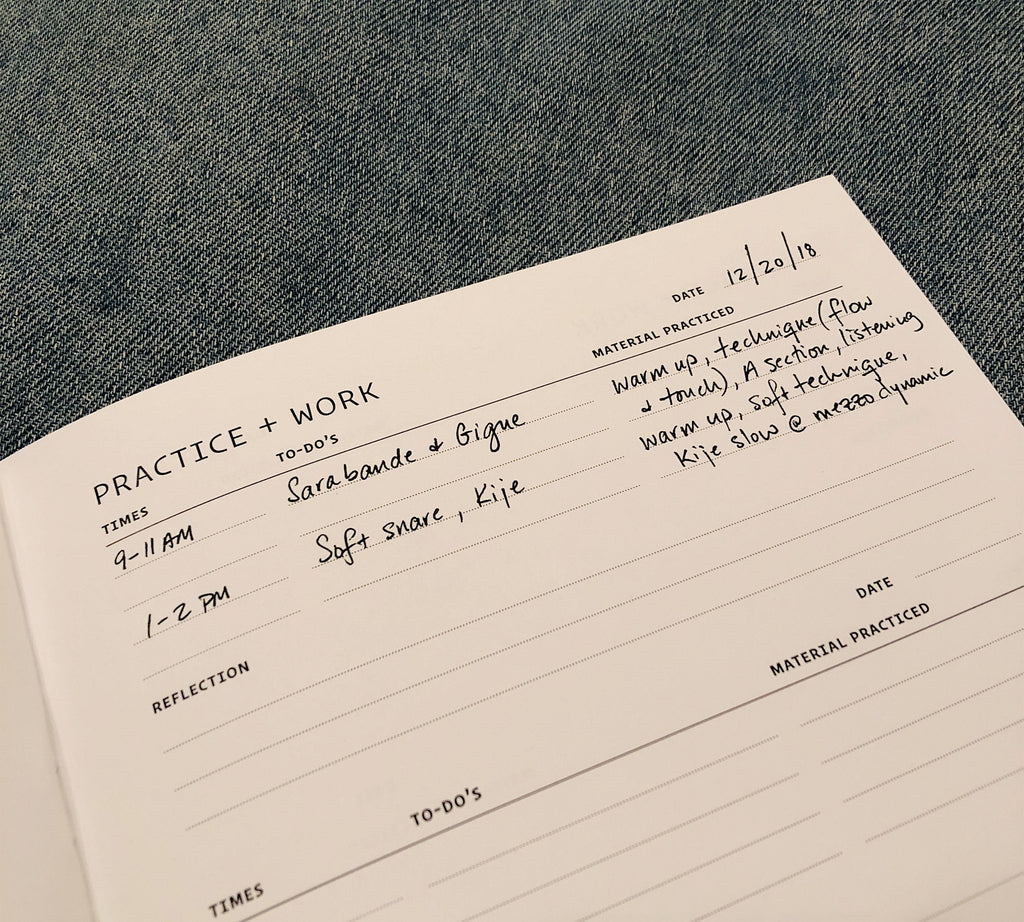 PRACTICE + WORK
DATE 12/20/18
TIMES TO-DO'S MATERIAL PRACTICED
9-11 AM Sarabande & Gigue warm up, technique (flow
& touch), A section, listening
1-2 PM Soft snare, Kije warm up, soft technique,
Kije slow @ mezzo dynamic
REFLECTION
DATE
TIMES TO-DO'S MATERIAL PRACTICED